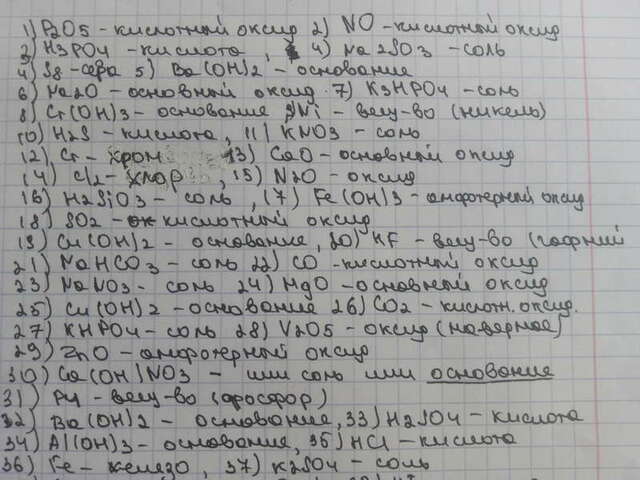 1) P2O5 - кислотный оксид 2) NO - кислотный оксид
3) H3PO4 - кислота, 4) Na2SO3 - соль
4) S8 - сера 5) Ba(OH)2 - основание
6) Na2O - основный оксид. 7) K3HPO4 - соль
8) Cr(OH)3 - основание 9) Ni - вещ-во (никель)
10) H2S - кислота, 11) KNO3 - соль
12) Cr - хром 13) CaO - основный оксид
14) Cl2 - хлор, 15) N2O - оксид
16) H2SiO3 - соль, 17) Fe(OH)3 - амфотерный оксид
18) SO2 - кислотный оксид
19) Cu(OH)2 - основание, 20) HF - вещ-во (гафний
21) NaHCO3 - соль 22) CO - кислотный оксид
23) NaNO3 - соль 24) MgO - основный оксид
25) Cu(OH)2 - основание 26) CO2 - кислотн. оксид.
27) KHPO4 - соль 28) V2O5 - оксид (наверное)
29) ZnO - амфотерный оксид
30) Ca(OH)NO3 - или соль или основание
31) P4 - вещ-во (фосфор)
32) Ba(OH)2 - основание, 33) H2SO4 - кислота
34) Al(OH)3 - основание, 35) HCl - кислота
36) Fe - железо, 37) K2SO4 - соль